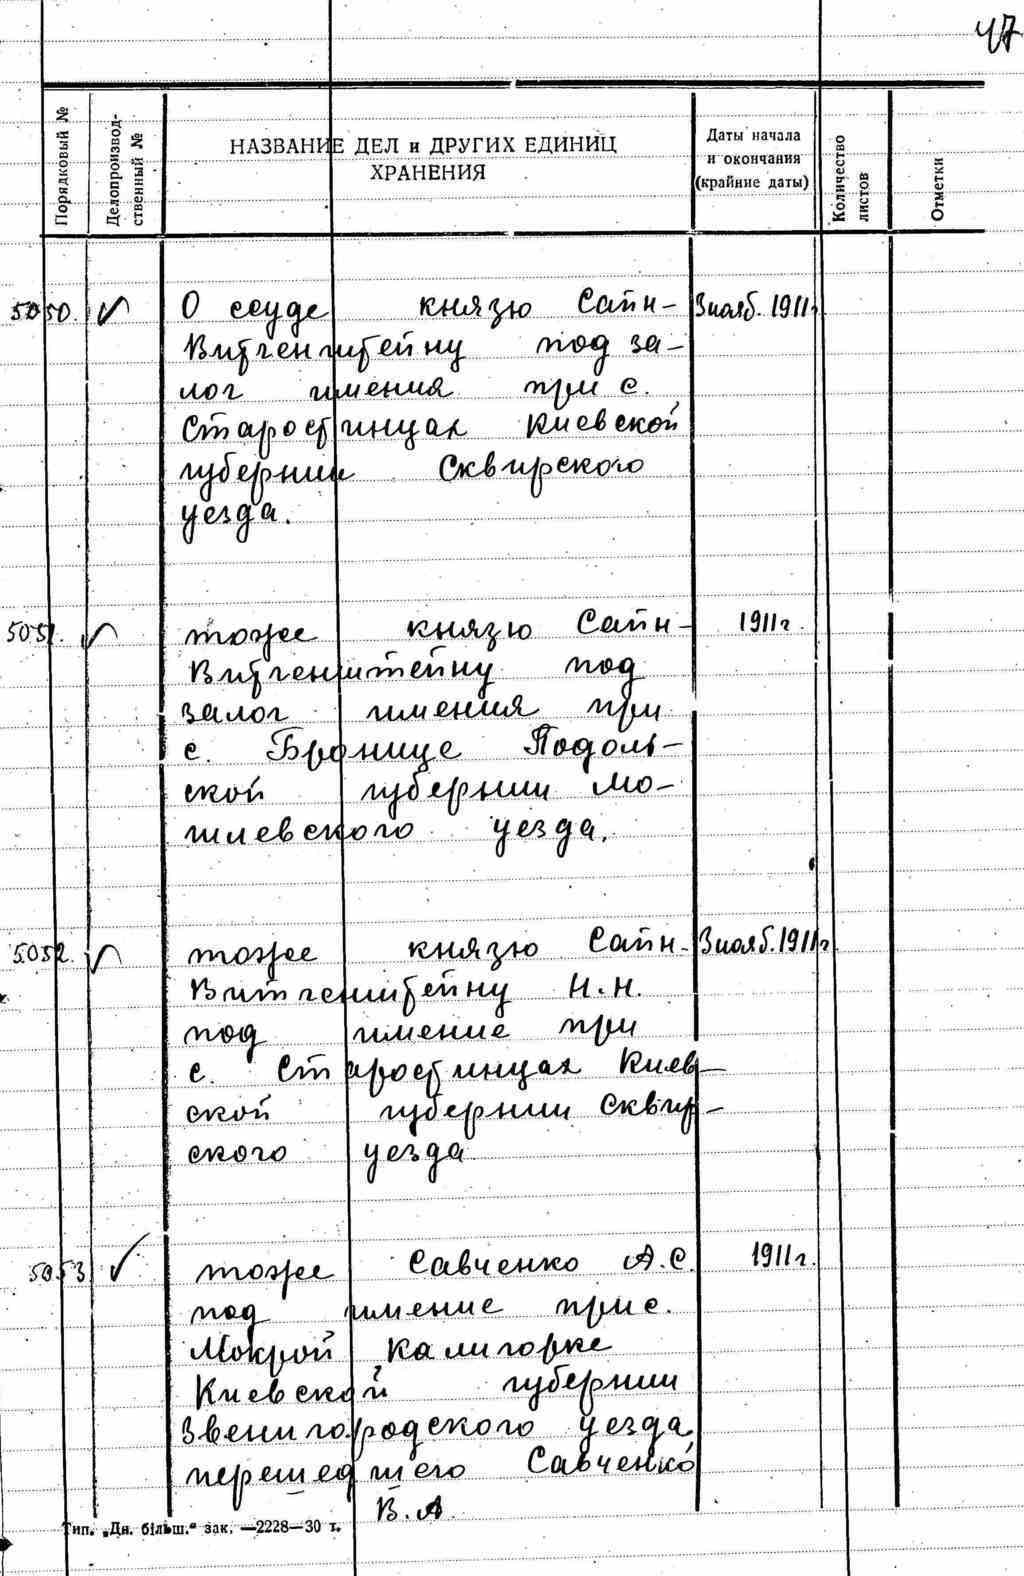 47
Порядковый №
Делопроизвод-
ственный №
НАЗВАНИЕ ДЕЛ и ДРУГИХ ЕДИНИЦ
ХРАНЕНИЯ
Даты начала
и окончания
(крайние даты)
Количество
листов
Отметки
5050. О ссуде князю Сайн- 3 нояб. 1911г.
Витгенштейну под за-
лог имения при с.
Старостинцах Киевской
губернии Сквирского
уезда.
5051. тоже князю Сайн- 1911г.
Витгенштейну под
залог имения при
с. Бронице Подоль-
ской губернии Мо-
гилевского уезда.
5052. тоже князю Сайн- 3 нояб. 1911г.
Витгенштейну Н.Н.
под имение при
с. Старостинцах Киев-
ской губернии Сквир-
ского уезда
5053 тоже Савченко А.С. 1911г.
под имение при с.
Мокрой Калигорке
Киевской губернии
Звенигородского уезда
перешедшего Савченко
В.А.
Тип. „Дн. більш.“ зак. —2228—30 т.